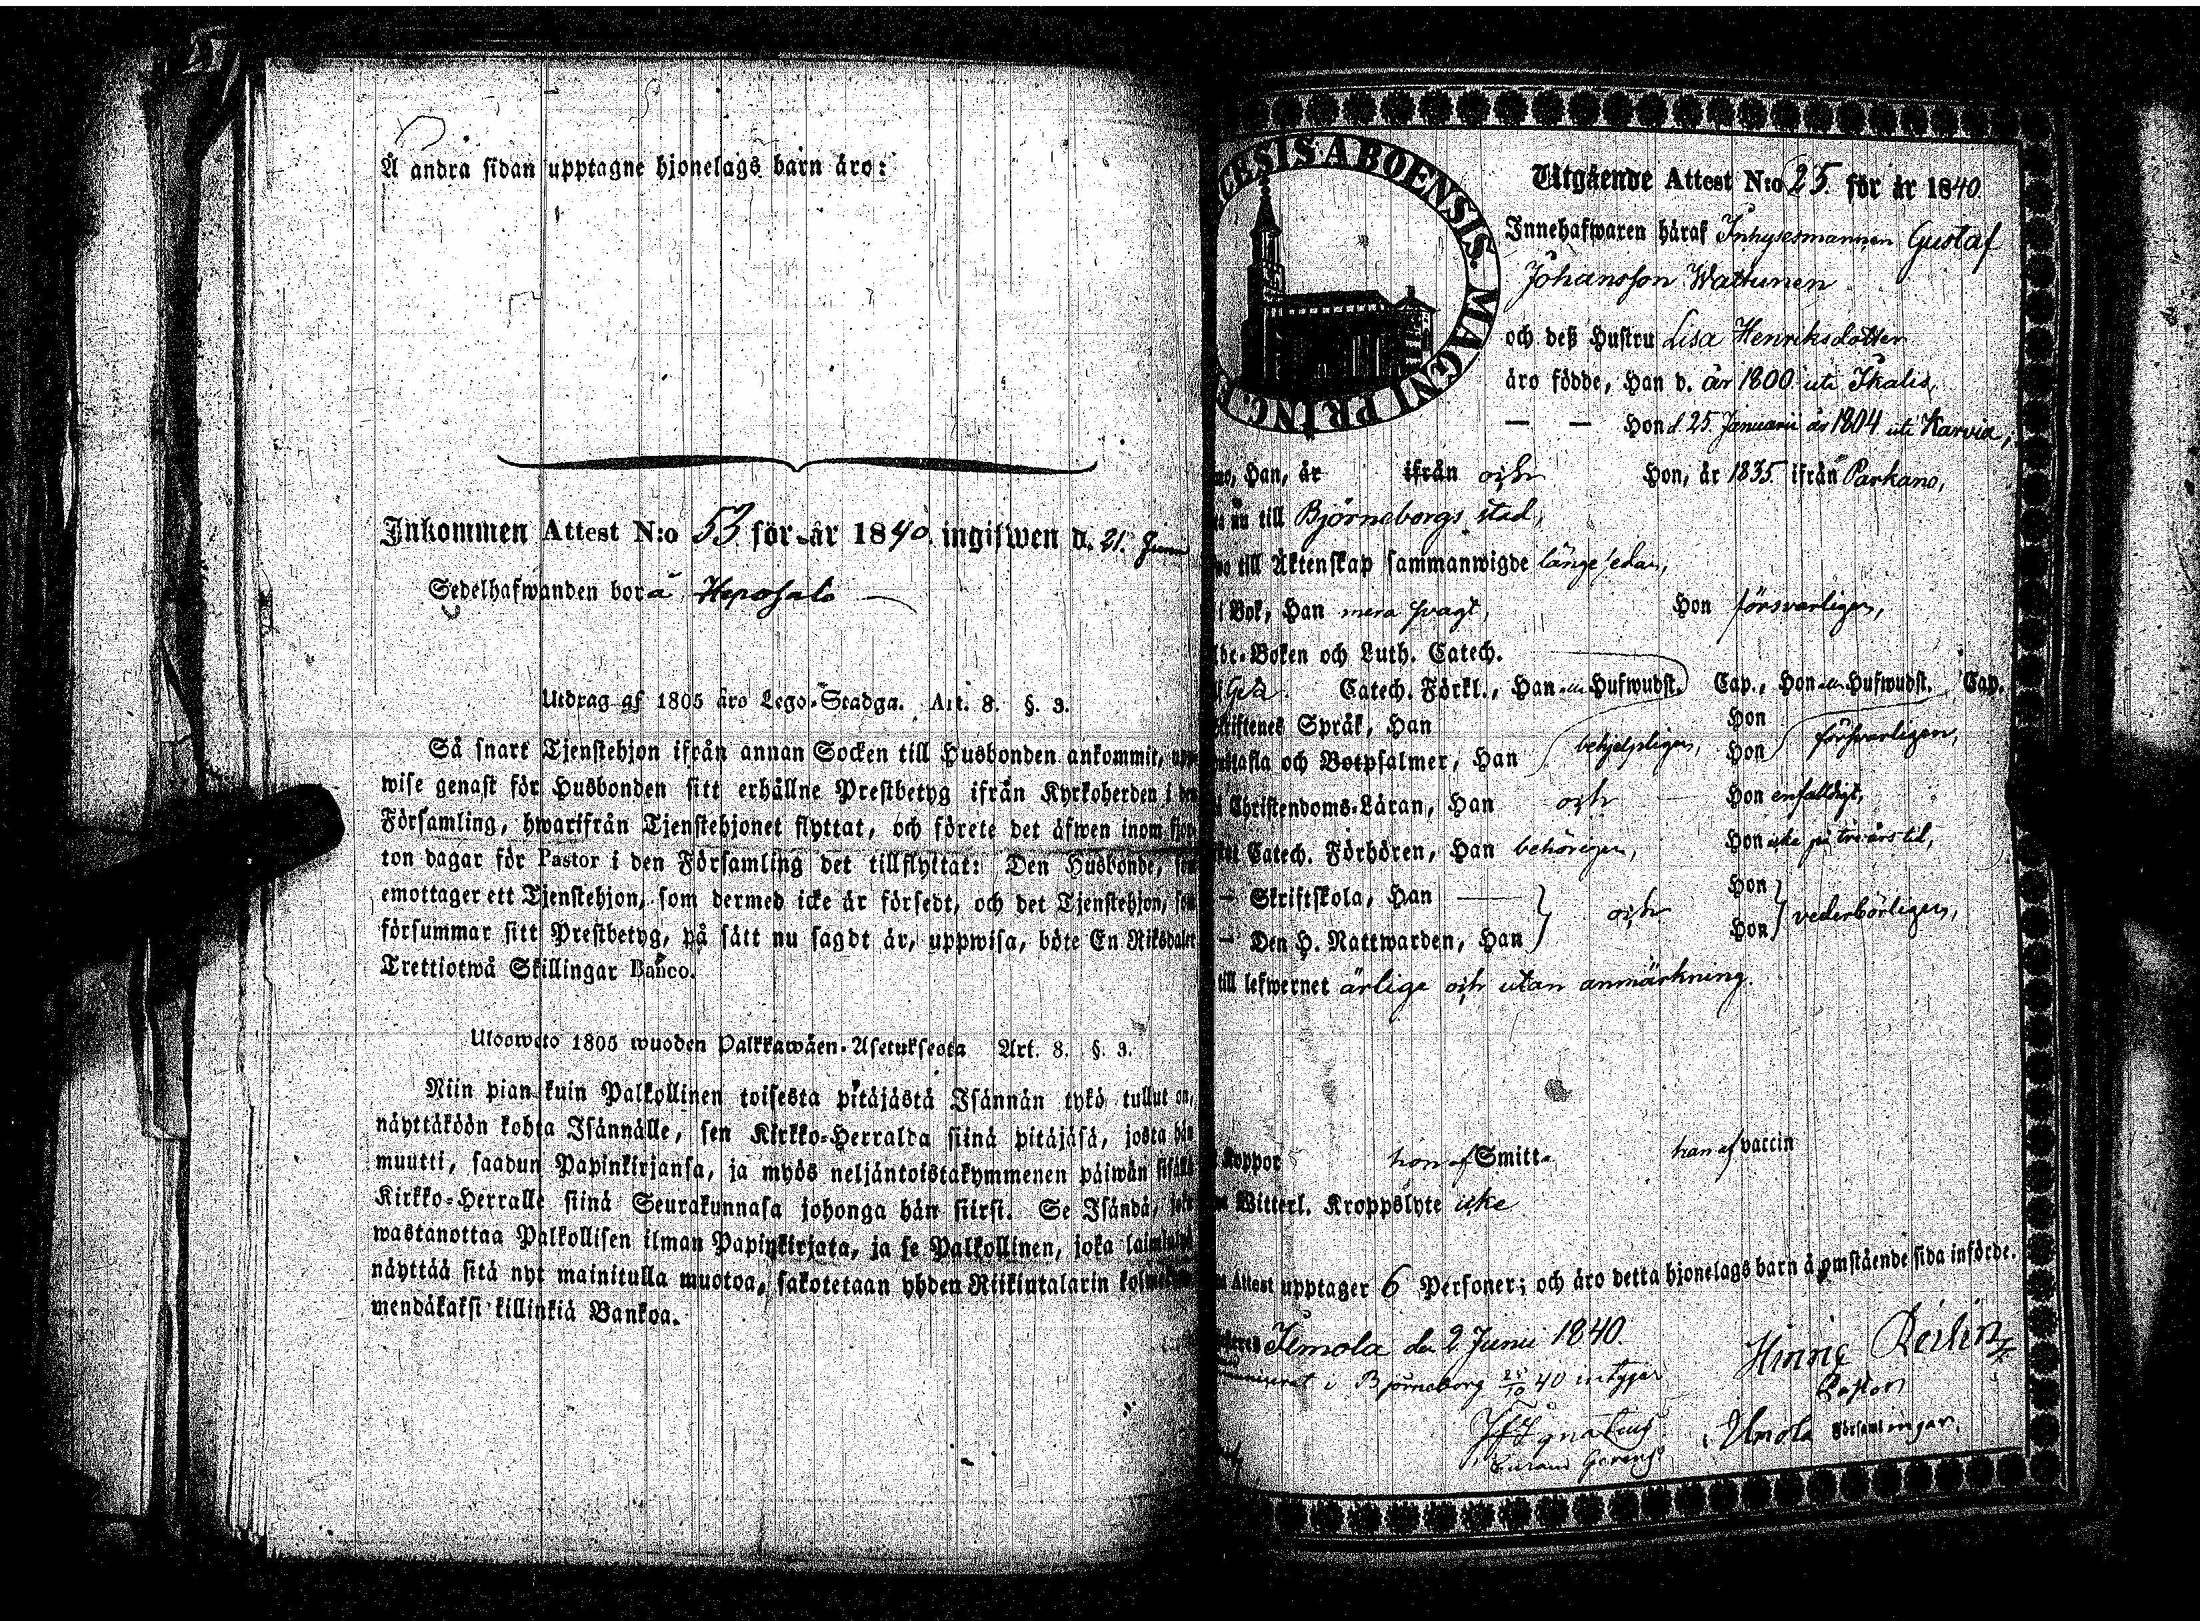 Å andra sidan upptagne hjonelags barn äro:
Inkommen Attest N:o 53 för år 1840 ingifwen d. 21. Juni
Sedelhafwanden bor å Heposalo
Utdrag af 1805 års Lego-Stadga. Art. 8. §. 3.
Så snart Tjenstehjon ifrån annan Socken till Husbonden ankommit, upp-
wise genast för Husbonden sitt erhållne Prestbetyg ifrån Kyrkoherden i den
Församling, hwarifrån Tjenstehjonet flyttat, och förete det äfwen inom fjor-
ton dagar för Pastor i den Församling det tillflyttat: Den Husbonde, som
emottager ett Tjenstehjon, som dermed icke är försedt, och det Tjenstehjon, som
försummar sitt Prestbetyg, på sätt nu sagdt är, uppwisa, böte En Riksdaler
Trettiotwå Skillingar Banco.
Ulosweto 1805 wuoden Palkkawäen-Asetuksesta Art. 8. §. 3.
Niin pian kuin Palkollinen toisesta pitäjästä Isännän tykö tullut on,
näyttäköön kohta Isännälle, sen Kirkko-Herralda siinä pitäjäsä, josta hän
muutti, saadun Papinkirjansa, ja myös neljäntoistakymmenen päiwän sisällä
Kirkko-Herralle siinä Seurakunnasa johonga hän siirsi. Se Isändä, joka
wastanottaa Palkollisen ilman Papinkirjata, ja se Palkollinen, joka laiminlyö
näyttää sitä nyt mainitulla muotoa, sakotetaan yhden Riikintalarin kolmekym-
mendäkaksi killinkiä Bankoa.
CESIS ABOENSIS MAGNI PRINC. F
Utgående Attest N:o 25. för år 1840.
Innehafwaren häraf Inhysesmannen Gustaf
Johansson Wattunen
och deß Hustru Lisa Henriksdotter
äro födde, Han d. år 1800 uti Ikalis,
— — Hon d. 25 Januarii år 1804 uti Karvia,
Han, år ifrån och Hon, år 1835 ifrån Parkano,
nu till Björneborgs stad,
till Äktenskap sammanwigde länge sedan,
i Bok, Han mera svagt, Hon försvarligen,
Boken och Luth. Catech.
Catech. Förkl., Han Hufwudst. Cap., Hon Hufwudst. Cap.
Skriftenes Språk, Han Hon
Hustafla och Botpsalmer, Han behjelpligen, Hon försvarligen,
i Christendoms-Läran, Han och Hon enfaldigt,
Catech. Förhören, Han behörigen, Hon icke på två års tid,
— Skriftskola, Han — Hon
— Den H. Nattwarden, Han och Hon vederbörligen,
till lefwernet ärlige och utan anmärkning.
Koppor hon af Smitta han af vaccin
Witterl. Kroppslyte icke
Attest upptager 6 Personer; och äro detta hjonelags barn å omstående sida införde.
Jemola den 2 Junii 1840.
i Björneborg 25/10 40 intygar
Pastor
Församlingar.